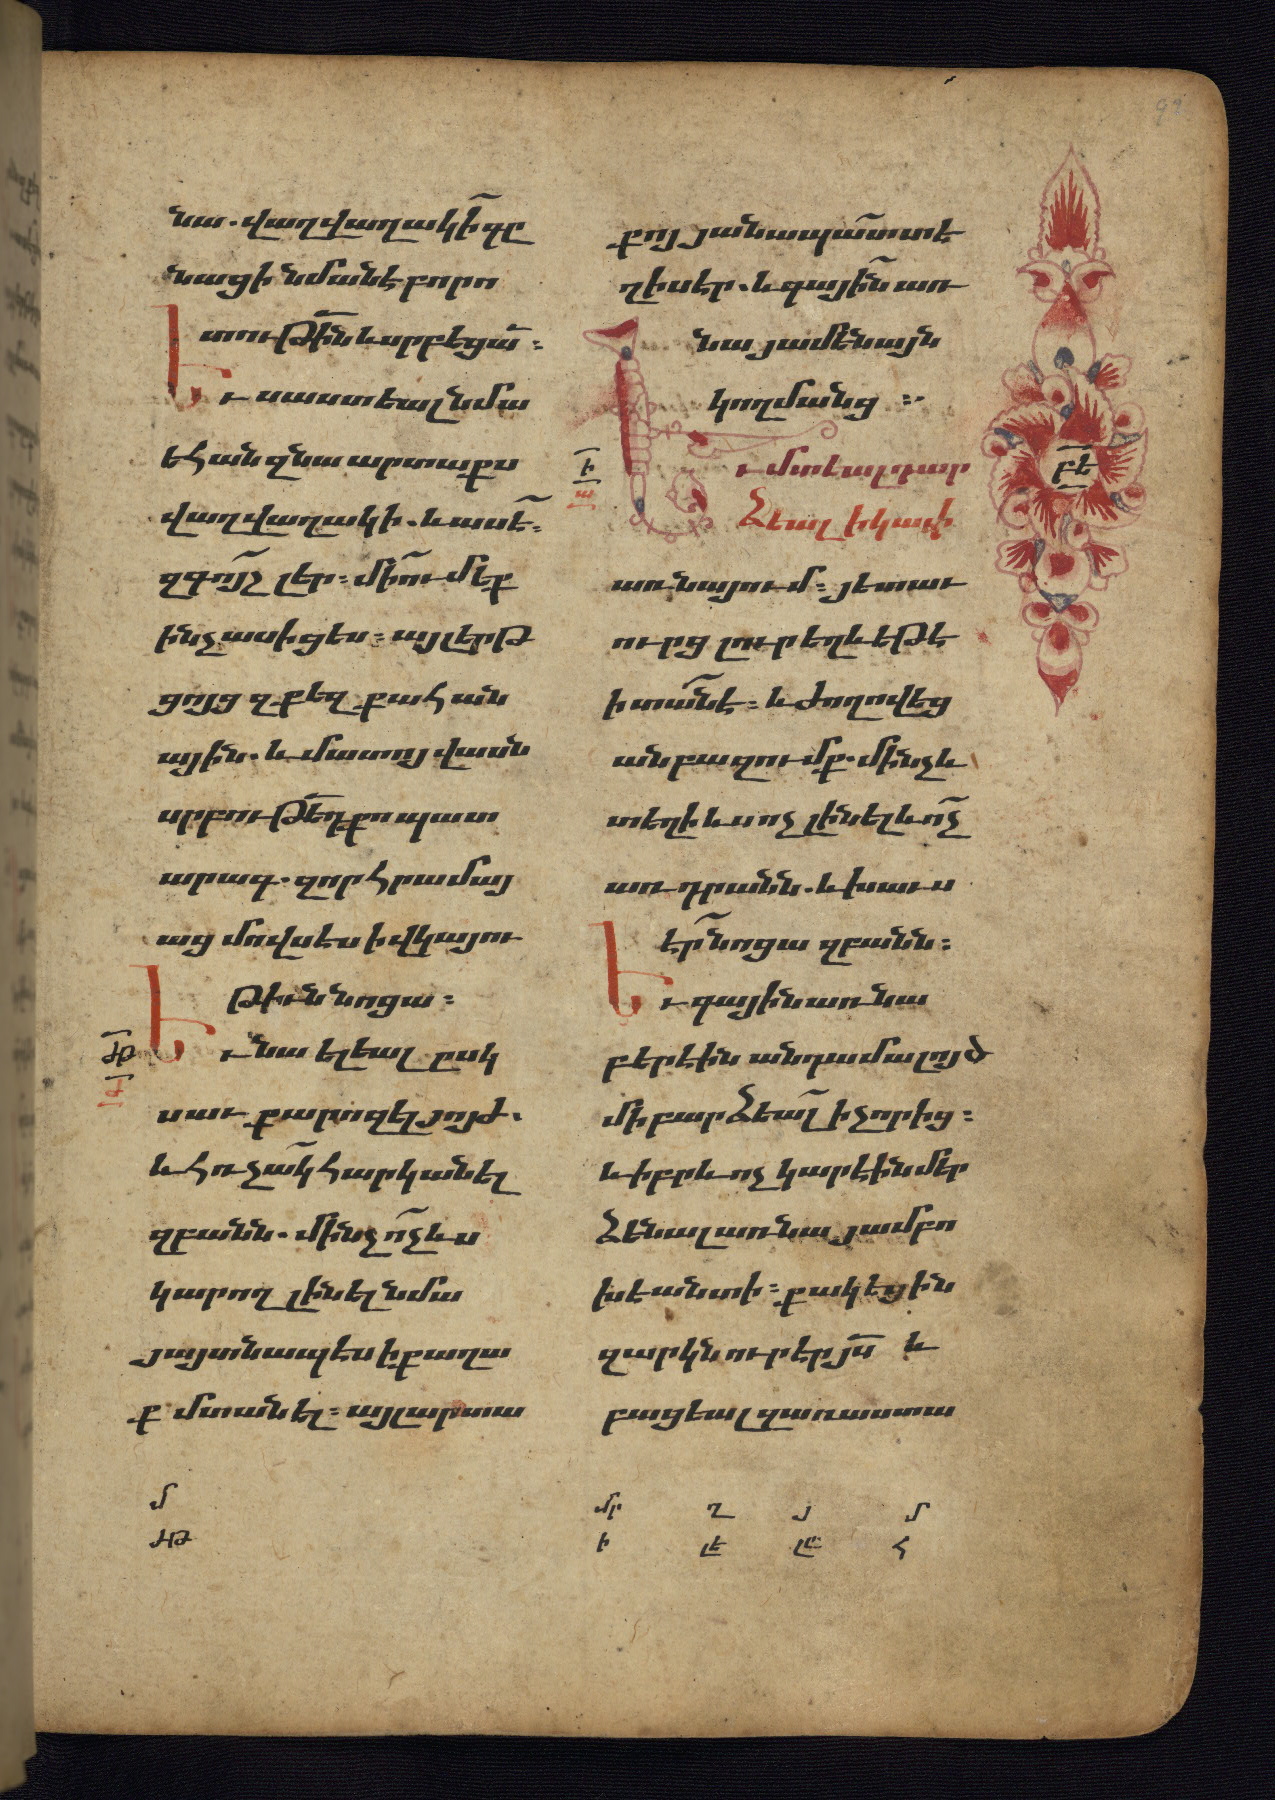 նա. վաղվաղակի գը
նացի նմանէ բորո
տութին և սրբեցա :
Եւ սաստեալ նմա
եհան զնա արտաքս
վաղվաղակի . և ասէ :
զգոյշ լեր : միում մեք
ինչ ասիցես : այլ երթ
ցոյց զքեզ քահան
ային . և մատո վասն
սրբութե քո պատ
արագ . զոր հրամայ
աց մովսես ի վկայու
թիւն նոցա :
Եւ նա ելեալ ըսկ
սաւ քարոզել յոյժ .
և հռչակ հարկանել
զբանն . մինչ ոչ ևս
կարող լինել նմա
յայտնապես ի քաղա
ք մտանել : այլ արտա
քոյ յանապատ տե
ղիսեր . և գային առ
նա յամենայն
կողմանց :
ի
Եւ մտեալ դար
ձեալ ի կափ
առնայում : յետ աւ
ուրց լուր եղև եթե
ի տանէ : և ժողովեց
ան բազումք . մինչև
տեղի ևս ոչ լինել և ոչ
առ դրանն . և խաւս
էր նոցա զբանն :
Եւ գային առ նա
բերէին անդամալոյծ
մի բարձեալ ի չորից :
և իբրև ոչ կարէին մեր
ձենալ առ նա յամբո
խէ անտի : քակեցին
զարկն ուր էր յս և
բացեալ զառաստա
բե
ժթ
մ
ժթ
մր ղ յ մ
ի լե լը հ